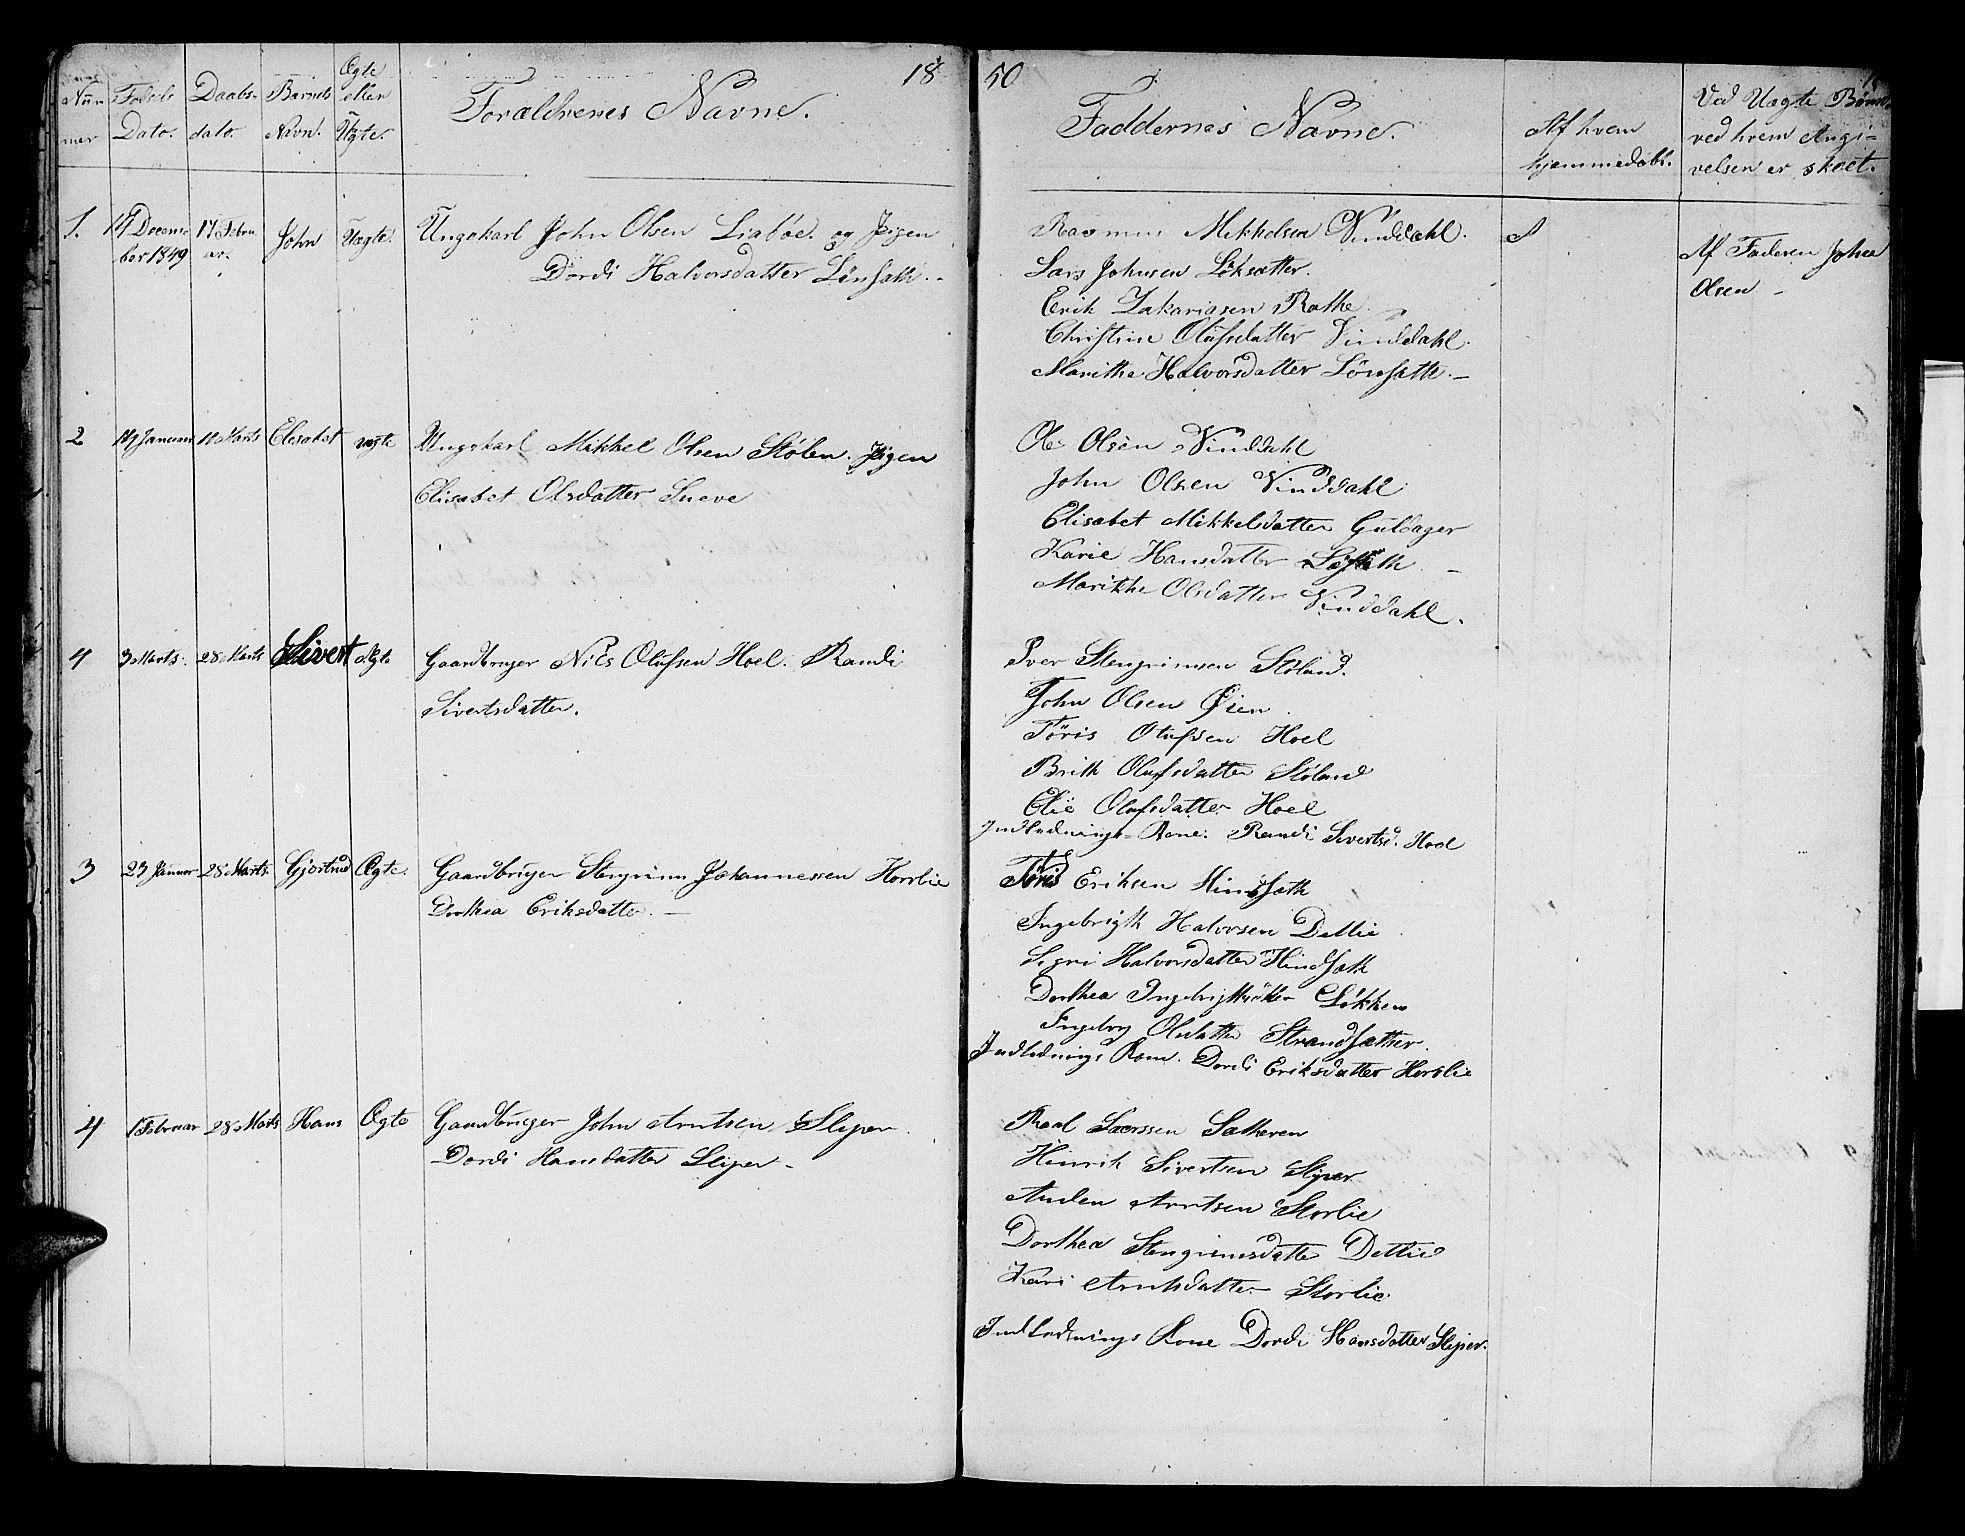 1850
Num mer
Fødsels Dato.
Daabs- dato.
Barnets Navn.
Ægte eller Uægte.
Forældrenes Navne.
Faddernes Navne.
Af hvem hjemmedøbt.
Ved Uægte Børn,
ved hvem Angi-
velsen er skeet.
1. 19 Decem- 17 Febru John Uægte. Ungekarl John Olsen Liabøe. og Pigen
ber 1849 ar.
Dordi Halvorsdatter Lønsæth.
Rasmus Mikkelsen Vinddahl.
Lars Johnsen Løksætter.
Erik Zakariasen Rathe.
Christine Olufsdatter Vinddahl.
Marithe Halvorsdatter Lønsæth.
Af Faderen John
Olsen
2 19 Januar 10 Marts Elisabet uægte Ungekarl Mikkel Olsen Stølen. Pigen
Elisabet Olsdatter Sneve
Ole Olsen Vinddahl
John Olsen Vinddahl
Elisabet Mikkelsdatter Guldager
Karie Hansdatter
Marithe Olsdatter Vinddahl.
4 3 Marts. 28 Marts Sivert Ægte Gaardbruger Nils Olufsen Hoel. Randi
Sivertsdatter.
Iver Stengrimsen Støland.
John Olsen Øien
Tøris Olufsen Hoel
Brith Olufsdatter Støland
Elie Olufsdatter Hoel
Indlednings-Kone. Randi Sivertsd. Hoel
3 23 Januar 28 Marts. Gjertrud Ægte. Gaardbruger Stengrim Johannessen Horslie
Dorthea Eriksdatter.
Tøris Eriksen Hindsæth
Ingebrigth Halvorsen Detlie
Sigri Halvorsdatter Hindsæth
Dorthea Ingebrigtsdatter Løkken
Ingebor Olsdatter Strandsæther.
Indlednings Kone. Dordi Eriksdatter Horslie
4 1 Februar 28 Marts Hans Ægte Gaardbruger John Arntsen Sliper.
Dordi Hansdatter Sliper
Roal Larssen Sætheren
Hinrik Sivertsen Sliper
Anden Arntsen Storlie
Dorthea Stengrimsdatter Detlie
Kari Arntsdatter Storlie
Indlednings Kone Dordi Hansdatter Sliper.